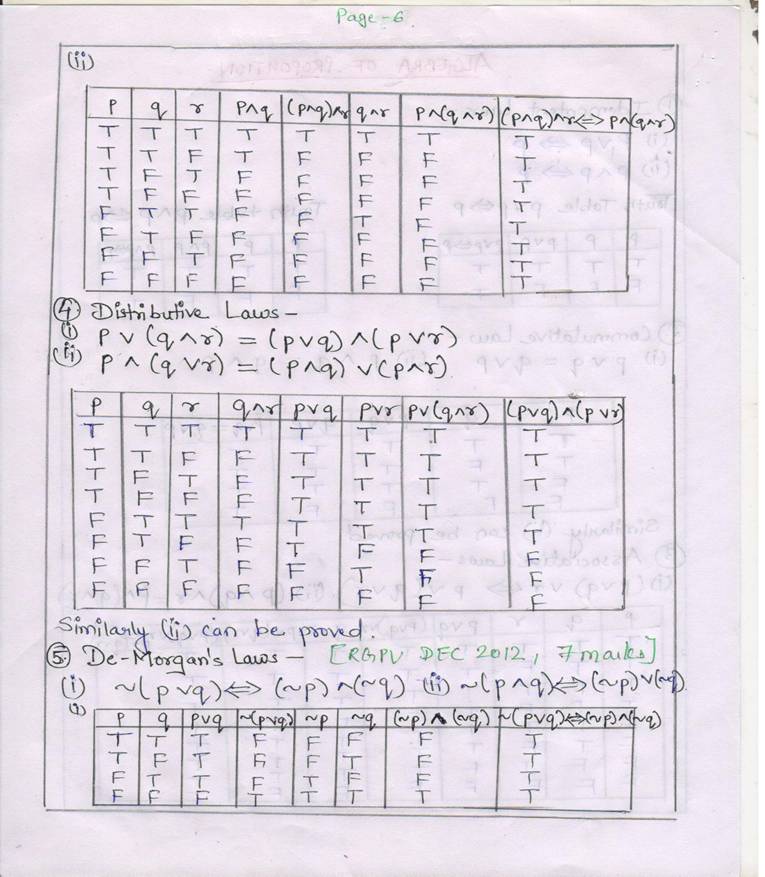 Page-6
(ii)
p q r p∧q (p∧q)∧r q∧r p∧(q∧r) (p∧q)∧r⇔p∧(q∧r)
T T T T T T T T
T T F T F F F T
T F T F F F F T
T F F F F F F T
F T T F F T F T
F T F F F F F T
F F T F F F F T
F F F F F F F T
④ Distributive Laws –
(i) p∨(q∧r) = (p∨q)∧(p∨r)
(ii) p∧(q∨r) = (p∧q)∨(p∧r)
p q r q∧r p∨q p∨r p∨(q∧r) (p∨q)∧(p∨r)
T T T T T T T T
T T F F T T T T
T F T F T T T T
T F F F T T T T
F T T T T T T T
F T F F T F F F
F F T F F T F F
F F F F F F F F
Similarly (ii) can be proved.
⑤ De-Morgan's Laws – [RGPV DEC 2012, 7 marks]
(i) ~(p∨q)⇔(~p)∧(~q) (ii) ~(p∧q)⇔(~p)∨(~q)
(i)
p q p∨q ~(p∨q) ~p ~q (~p)∧(~q) ~(p∨q)⇔(~p)∧(~q)
T T T F F F F T
T F T F F T F T
F T T F T F F T
F F F T T T T T